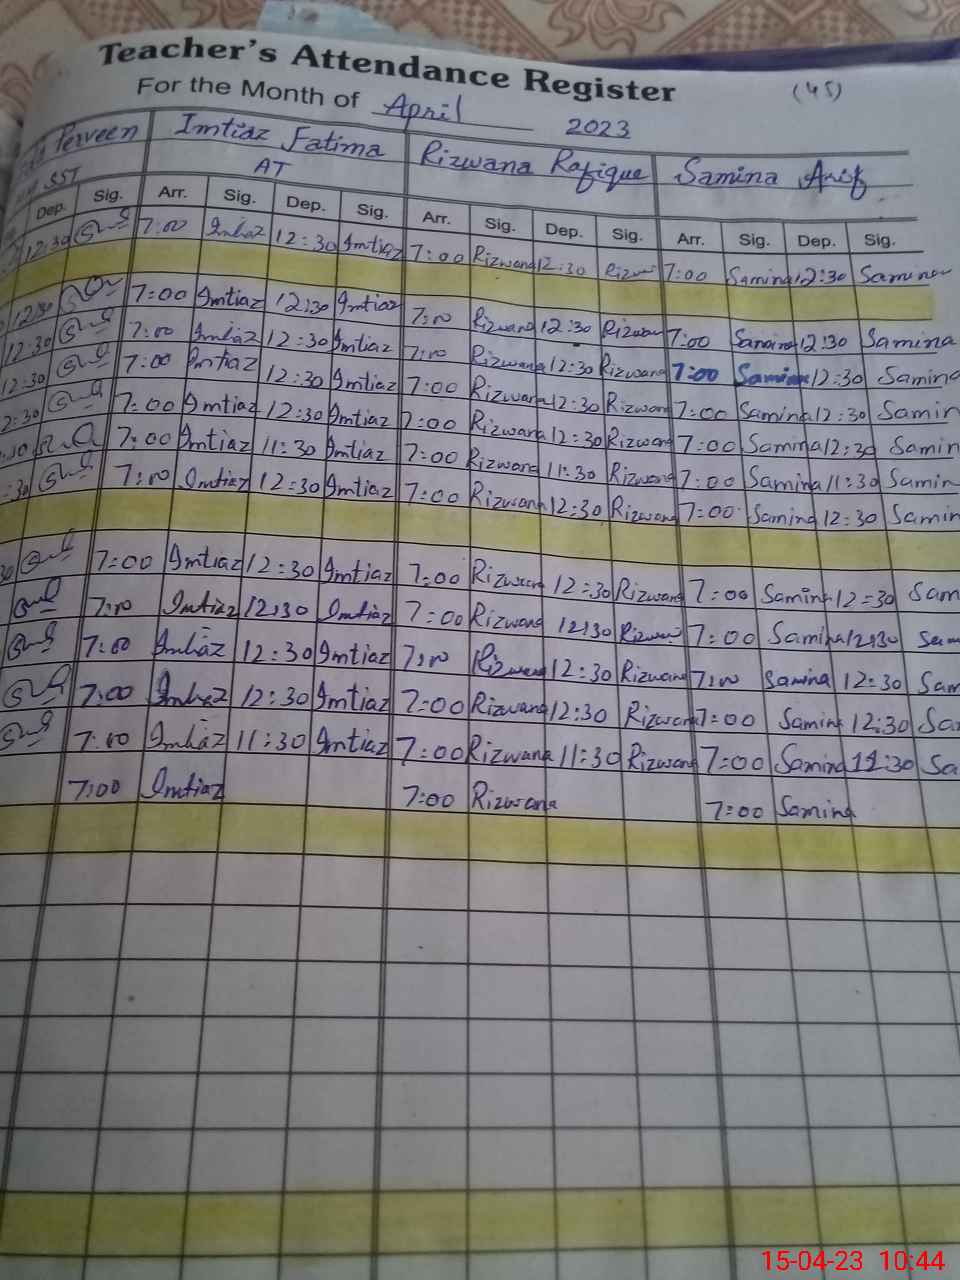 (45)
Teacher's Attendance Register
For the Month of April 2023
Perveen Imtiaz Fatima Rizwana Rafique Samina Arif
SST AT
Dep. Sig. Arr. Sig. Dep. Sig. Arr. Sig. Dep. Sig. Arr. Sig. Dep. Sig.
12:30 7:00 Imtiaz 12:30 Imtiaz 7:00 Rizwana 12:30 Rizwana 7:00 Samina 12:30 Samina
12:30 7:00 Imtiaz 12:30 Imtiaz 7:00 Rizwana 12:30 Rizwana 7:00 Samina 12:30 Samina
12:30 7:00 Imtiaz 12:30 Imtiaz 7:00 Rizwana 12:30 Rizwana 7:00 Samina 12:30 Samina
12:30 7:00 Imtiaz 12:30 Imtiaz 7:00 Rizwana 12:30 Rizwana 7:00 Samina 12:30 Samin
2:30 7:00 Imtiaz 12:30 Imtiaz 7:00 Rizwana 12:30 Rizwana 7:00 Samina 12:30 Samin
7:00 Imtiaz 11:30 Imtiaz 7:00 Rizwana 11:30 Rizwana 7:00 Samina 11:30 Samin
:30 7:00 Imtiaz 12:30 Imtiaz 7:00 Rizwana 12:30 Rizwana 7:00 Samina 12:30 Samin
30 7:00 Imtiaz 12:30 Imtiaz 7:00 Rizwana 12:30 Rizwana 7:00 Samina 12:30 Sam
7:00 Imtiaz 12:30 Imtiaz 7:00 Rizwana 12:30 Rizwana 7:00 Samina 12:30 Sam
7:00 Imtiaz 12:30 Imtiaz 7:00 Rizwana 12:30 Rizwana 7:00 Samina 12:30 Sam
7:00 Imtiaz 12:30 Imtiaz 7:00 Rizwana 12:30 Rizwana 7:00 Samina 12:30 Sa
7:00 Imtiaz 11:30 Imtiaz 7:00 Rizwana 11:30 Rizwana 7:00 Samina 11:30 Sa
7:00 Imtiaz 7:00 Rizwana 7:00 Samina
15-04-23 10:44